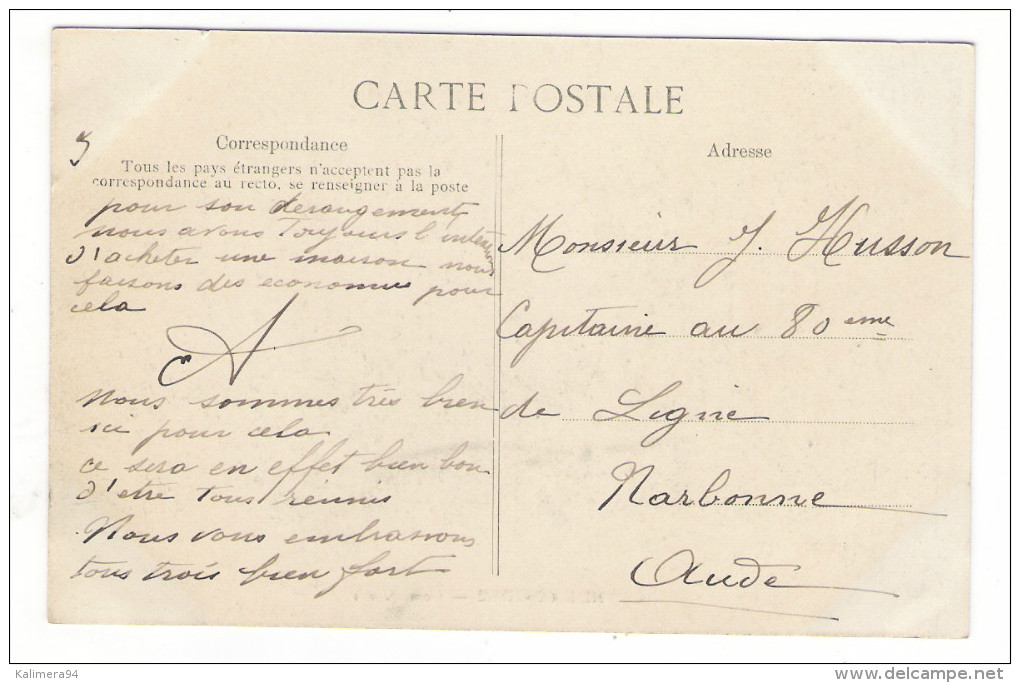 CARTE POSTALE
Correspondance
Tous les pays étrangers n'acceptent pas la
correspondance au recto, se renseigner à la poste
5
pour son derangement
nous avons toujours l'intention
d'acheter une maison nous
faisons des economies pour
cela
A
Nous sommes très bien
ici pour cela
ce sera en effet bien bon
d'etre tous réunis
Nous vous embrassons
tous trois bien fort
Adresse
Monsieur J. Husson
Capitaine au 80eme
de Ligne
Narbonne
Aude
Kalimera94
www.delcampe.net